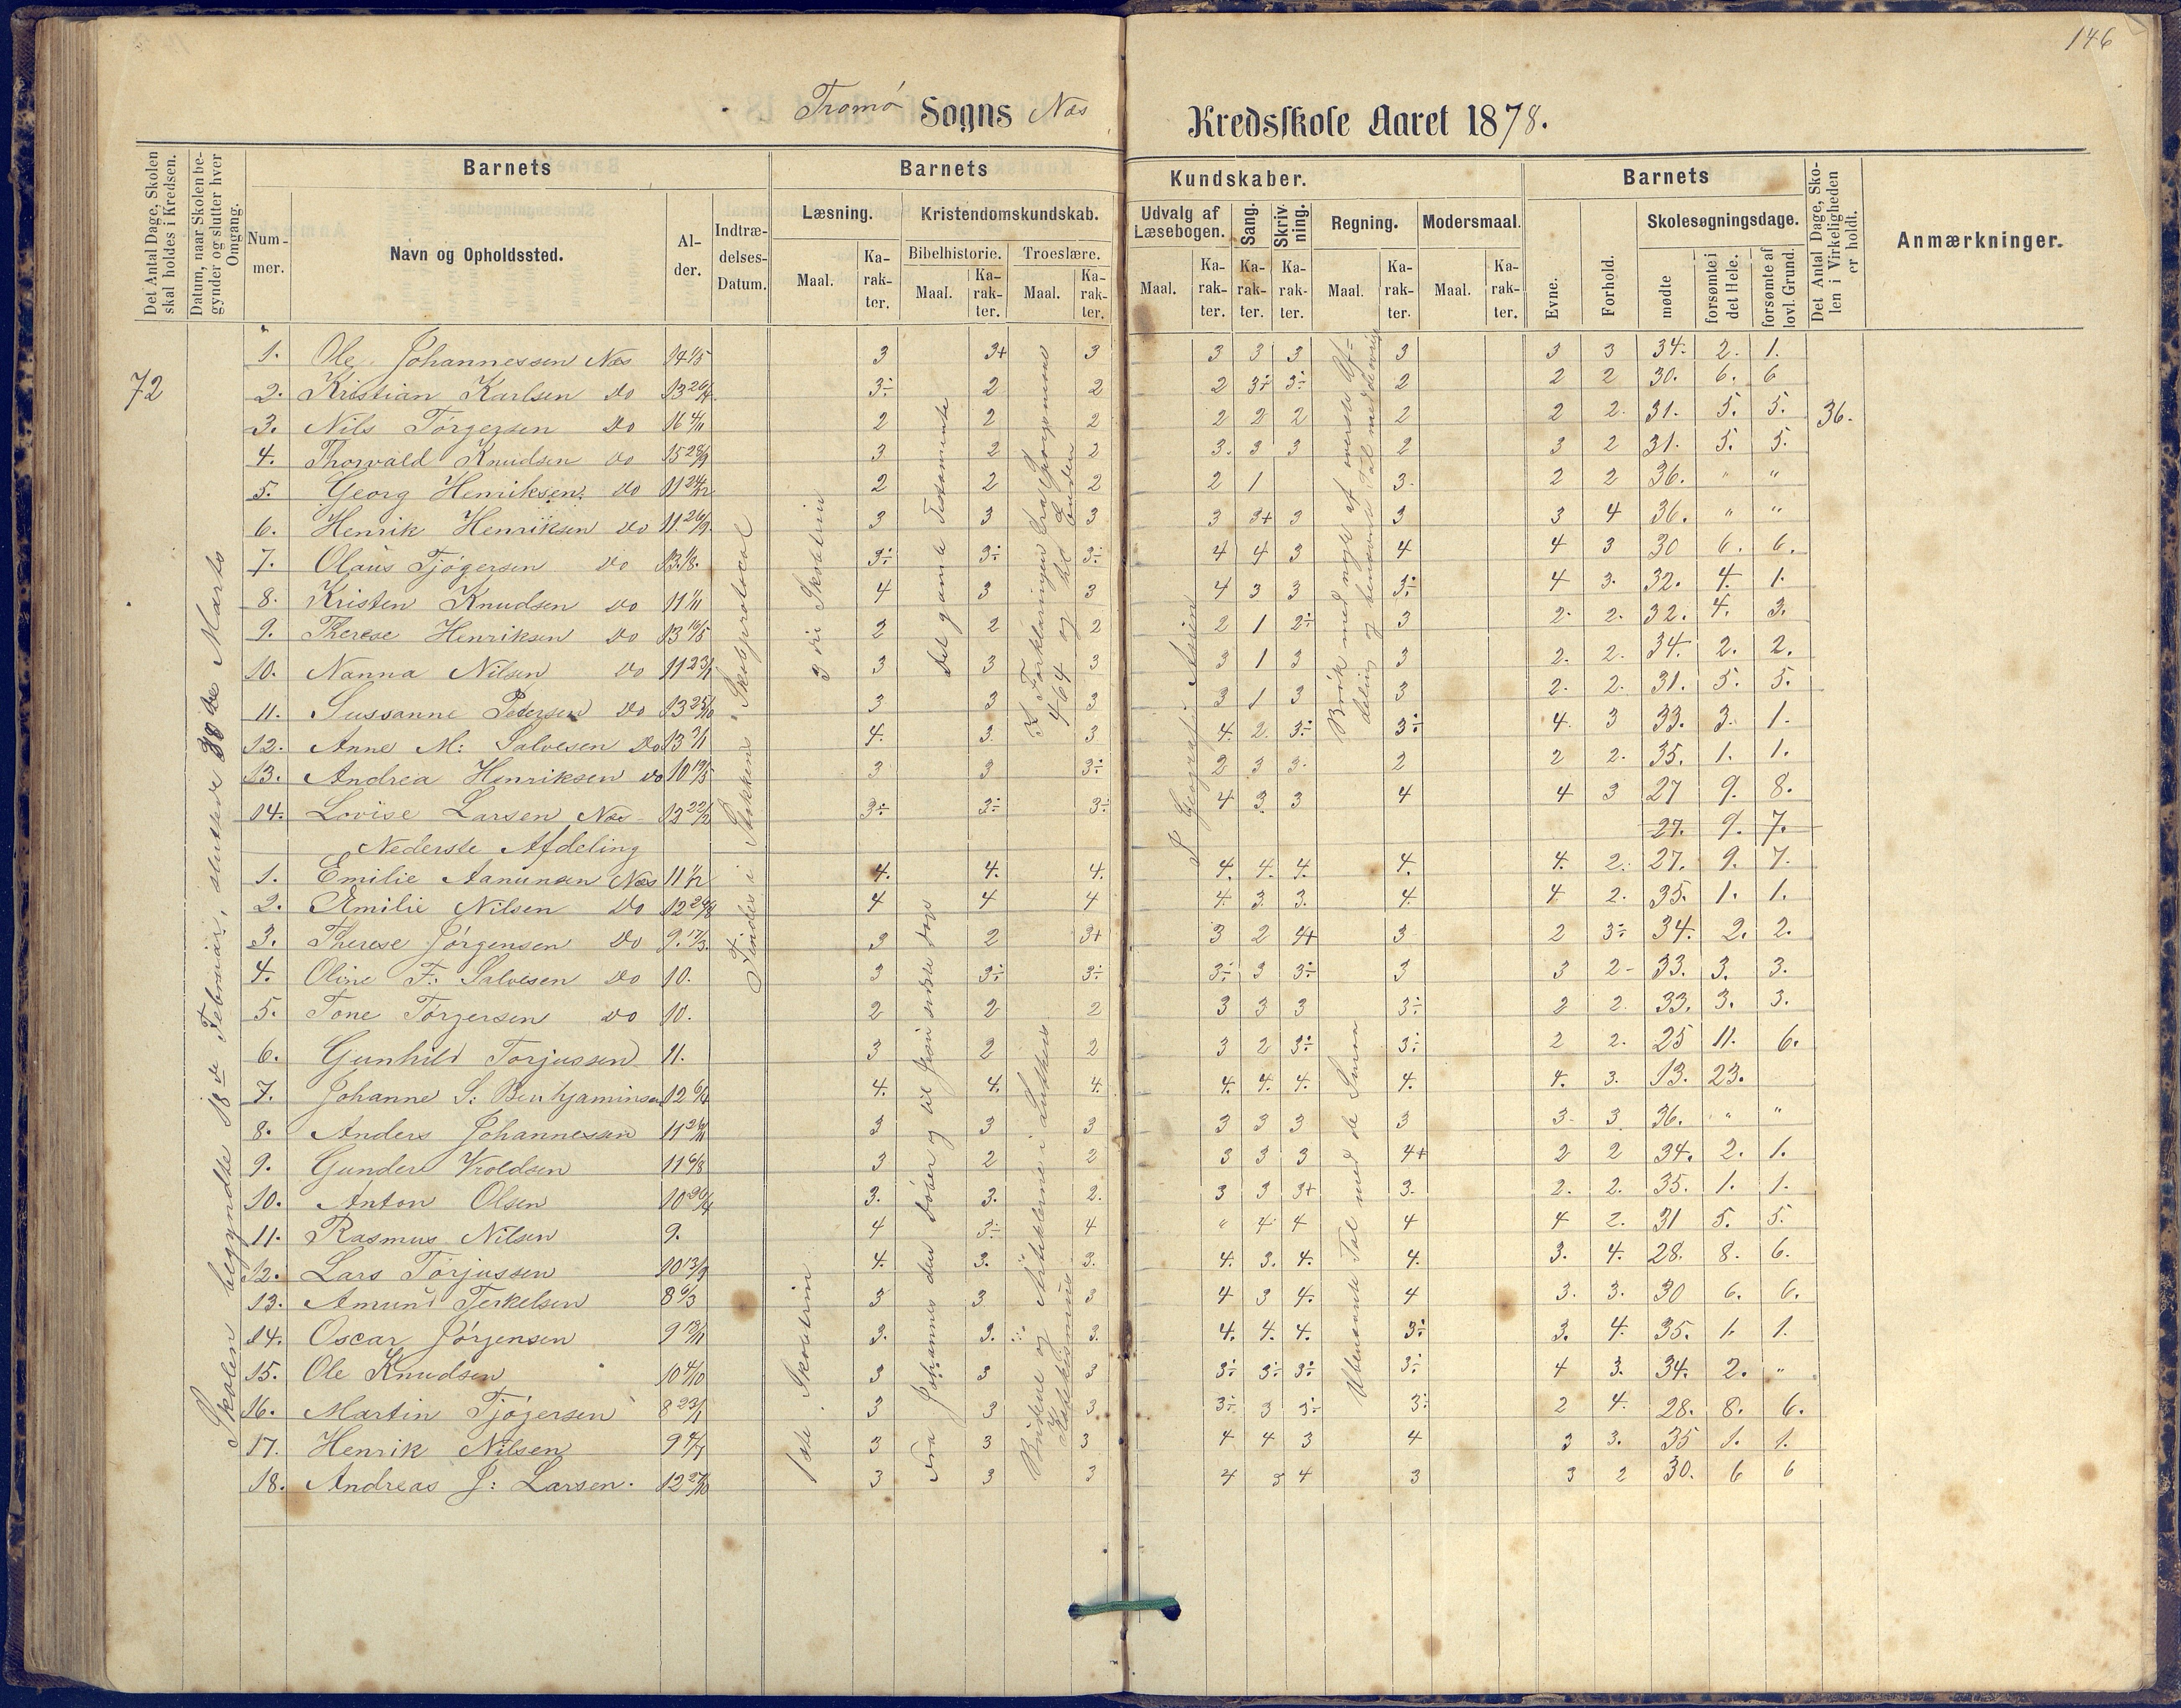 146
Tromø Sogns Næs Kredsskole Aaret 1878.
Det Antal Dage, Skolen skal holdes i Kredsen.
Datum, naar Skolen begynder og slutter hver Omgang.
Barnets
Nummer.
Navn og Opholdssted.
Alder.
Indtrædelses-Datum.
Barnets Kundskaber.
Læsning.
Maal.
Karakter.
Kristendomskundskab.
Bibelhistorie.
Maal.
Karakter.
Troeslære.
Maal.
Karakter.
Udvalg af Læsebogen.
Maal.
Karakter.
Sang.
Karakter.
Skrivning.
Karakter.
Regning.
Maal.
Karakter.
Modersmaal.
Maal.
Karakter.
Barnets
Evne.
Forhold.
Skolesøgningsdage.
mødte
forsømte i det Hele.
forsømte af lovl. Grund.
Det Antal Dage, Skolen i Virkeligheden er holdt.
Anmærkninger.
72
Skolen begyndte 18de Februar, sluttede 30de Marts
Findes i Stokkens Skoleprotocol
3die Skoletrin
det gamle Testamente
I Geografi Asien
36.
1. Ole Johannessen Næs 14 1/5 3 3+ 3 3 3 3 3 3 3 34. 2. 1.
2. Kristian Karlsen do 13 26/4 3÷ 2 2 2 3÷ 3÷ 2 2 2 30. 6. 6
3. Nils Torgersen do 16 4/11 2 2 2 2 2 2 2 2 2. 31. 5. 5.
4. Thorvald Knudsen do 15 29/9 3 2 2 3. 3 3 2 3 2 31. 5. 5.
5. Georg Henriksen do 11 24/12 2 2 2 2 1 3. 2 2 36. " "
6. Henrik Henriksen do 11 26/9 3 3 3 3 3+ 3 3 3 4 36. " "
7. Olaus Tjøgersen do 13 1/8. 3÷ 3÷ 3÷ 4 4 3 4 4 3 30 6. 6.
8. Kristen Knudsen do 11 1/11 4 3 3 4 3 3 3÷ 4 3. 32. 4. 1.
9. Therese Henriksen do 13 16/5 2 2 2 2 1 2÷ 3 2. 2. 32. 4. 3.
10. Nanna Nilsen do 11 23/1 3 3 3 3 1 3 3 2. 2. 34. 2. 2.
11. Sussanne Pedersen do 13 25/10 3 3 3 3 1 3 3 2. 2. 31. 5. 5.
12. Anne M: Salvesen do 13 3/1 4. 3 3 4. 2. 3÷ 3÷ 4. 3 33. 3. 1.
13. Andrea Henriksen do 10 19/5 3 3 3÷ 2 3 3. 2 2 2. 35. 1. 1.
14. Lovise Larsen Næs 12 22/12 3÷ 3÷ 3÷ 4 3 3 4 4 3 27 9. 8.
27. 9. 7.
Nederste Afdeling
1ste Skoletrin
1. Emilie Aanunsen Næs 11 1/2 4. 4. 4. 4. 4. 4. 4. 4. 2. 27. 9. 7.
2. Emilie Nilsen do 12 24/8 4 4 4 4. 3. 3. 4. 4 2. 35. 1. 1.
3. Therese Jørgensen do 9. 17/3. 3 2 3+ 3 2 4+ 3 2 3÷ 34. 2. 2.
4. Oline F: Salvesen do 10. 3 3÷ 3÷ 3÷ 3 3÷ 3 3 2- 33. 3. 3.
5. Tone Torgersen do 10. 2 2 2 3 3 3 3÷ 2 2. 33. 3. 3.
6. Gunhild Torjussen 11. 3 2 2 3 2 3÷ 3÷ 2 2. 25 11. 6.
7. Johanne S: Benhjaminsen 12 6/4 4. 4. 4. 4. 4. 4. 4. 4. 3. 13. 23.
8. Anders Johannessen 11 26/11 3 3 3 3 3 3 3 3. 3 36. " "
9. Gunder Kroldsen 11 6/8 3 2 2 3 3 3 4+ 2 2 34. 2. 1.
10. Anton Olsen 10 30/4 3. 3. 2. 3 3 3+ 3. 2. 2. 35. 1. 1.
11. Rasmus Nilsen 9. 4 3÷ 4 " 4 4 4 4 2. 31 5. 5.
12. Lars Torjussen 10 13/9 4. 3. 3. 4. 3. 4. 4. 3. 4. 28. 8. 6.
13. Amund Terkelsen 8 6/3 3 3 3 4 3 4. 4 3. 3. 30 6. 6.
14. Oscar Jørgensen 9 13/11 3. 3. 3. 4. 4. 4. 3÷ 3. 4. 35. 1. 1.
15. Ole Knudsen 10 4/10 3 3 3 3÷ 3÷ 3÷ 3÷ 4 3. 34. 2. "
16. Martin Tjøgersen 8 23/1 3 3 3 3÷ 3 3÷ 3÷ 2 4. 28. 8. 6.
17. Henrik Nilsen 9 4/7 3 3 3 4 4 3 4 3 3. 35 1. 1.
18. Andreas J: Larsen. 12 27/10 3 3 3 4 3 4 3 3 2 30. 6 6